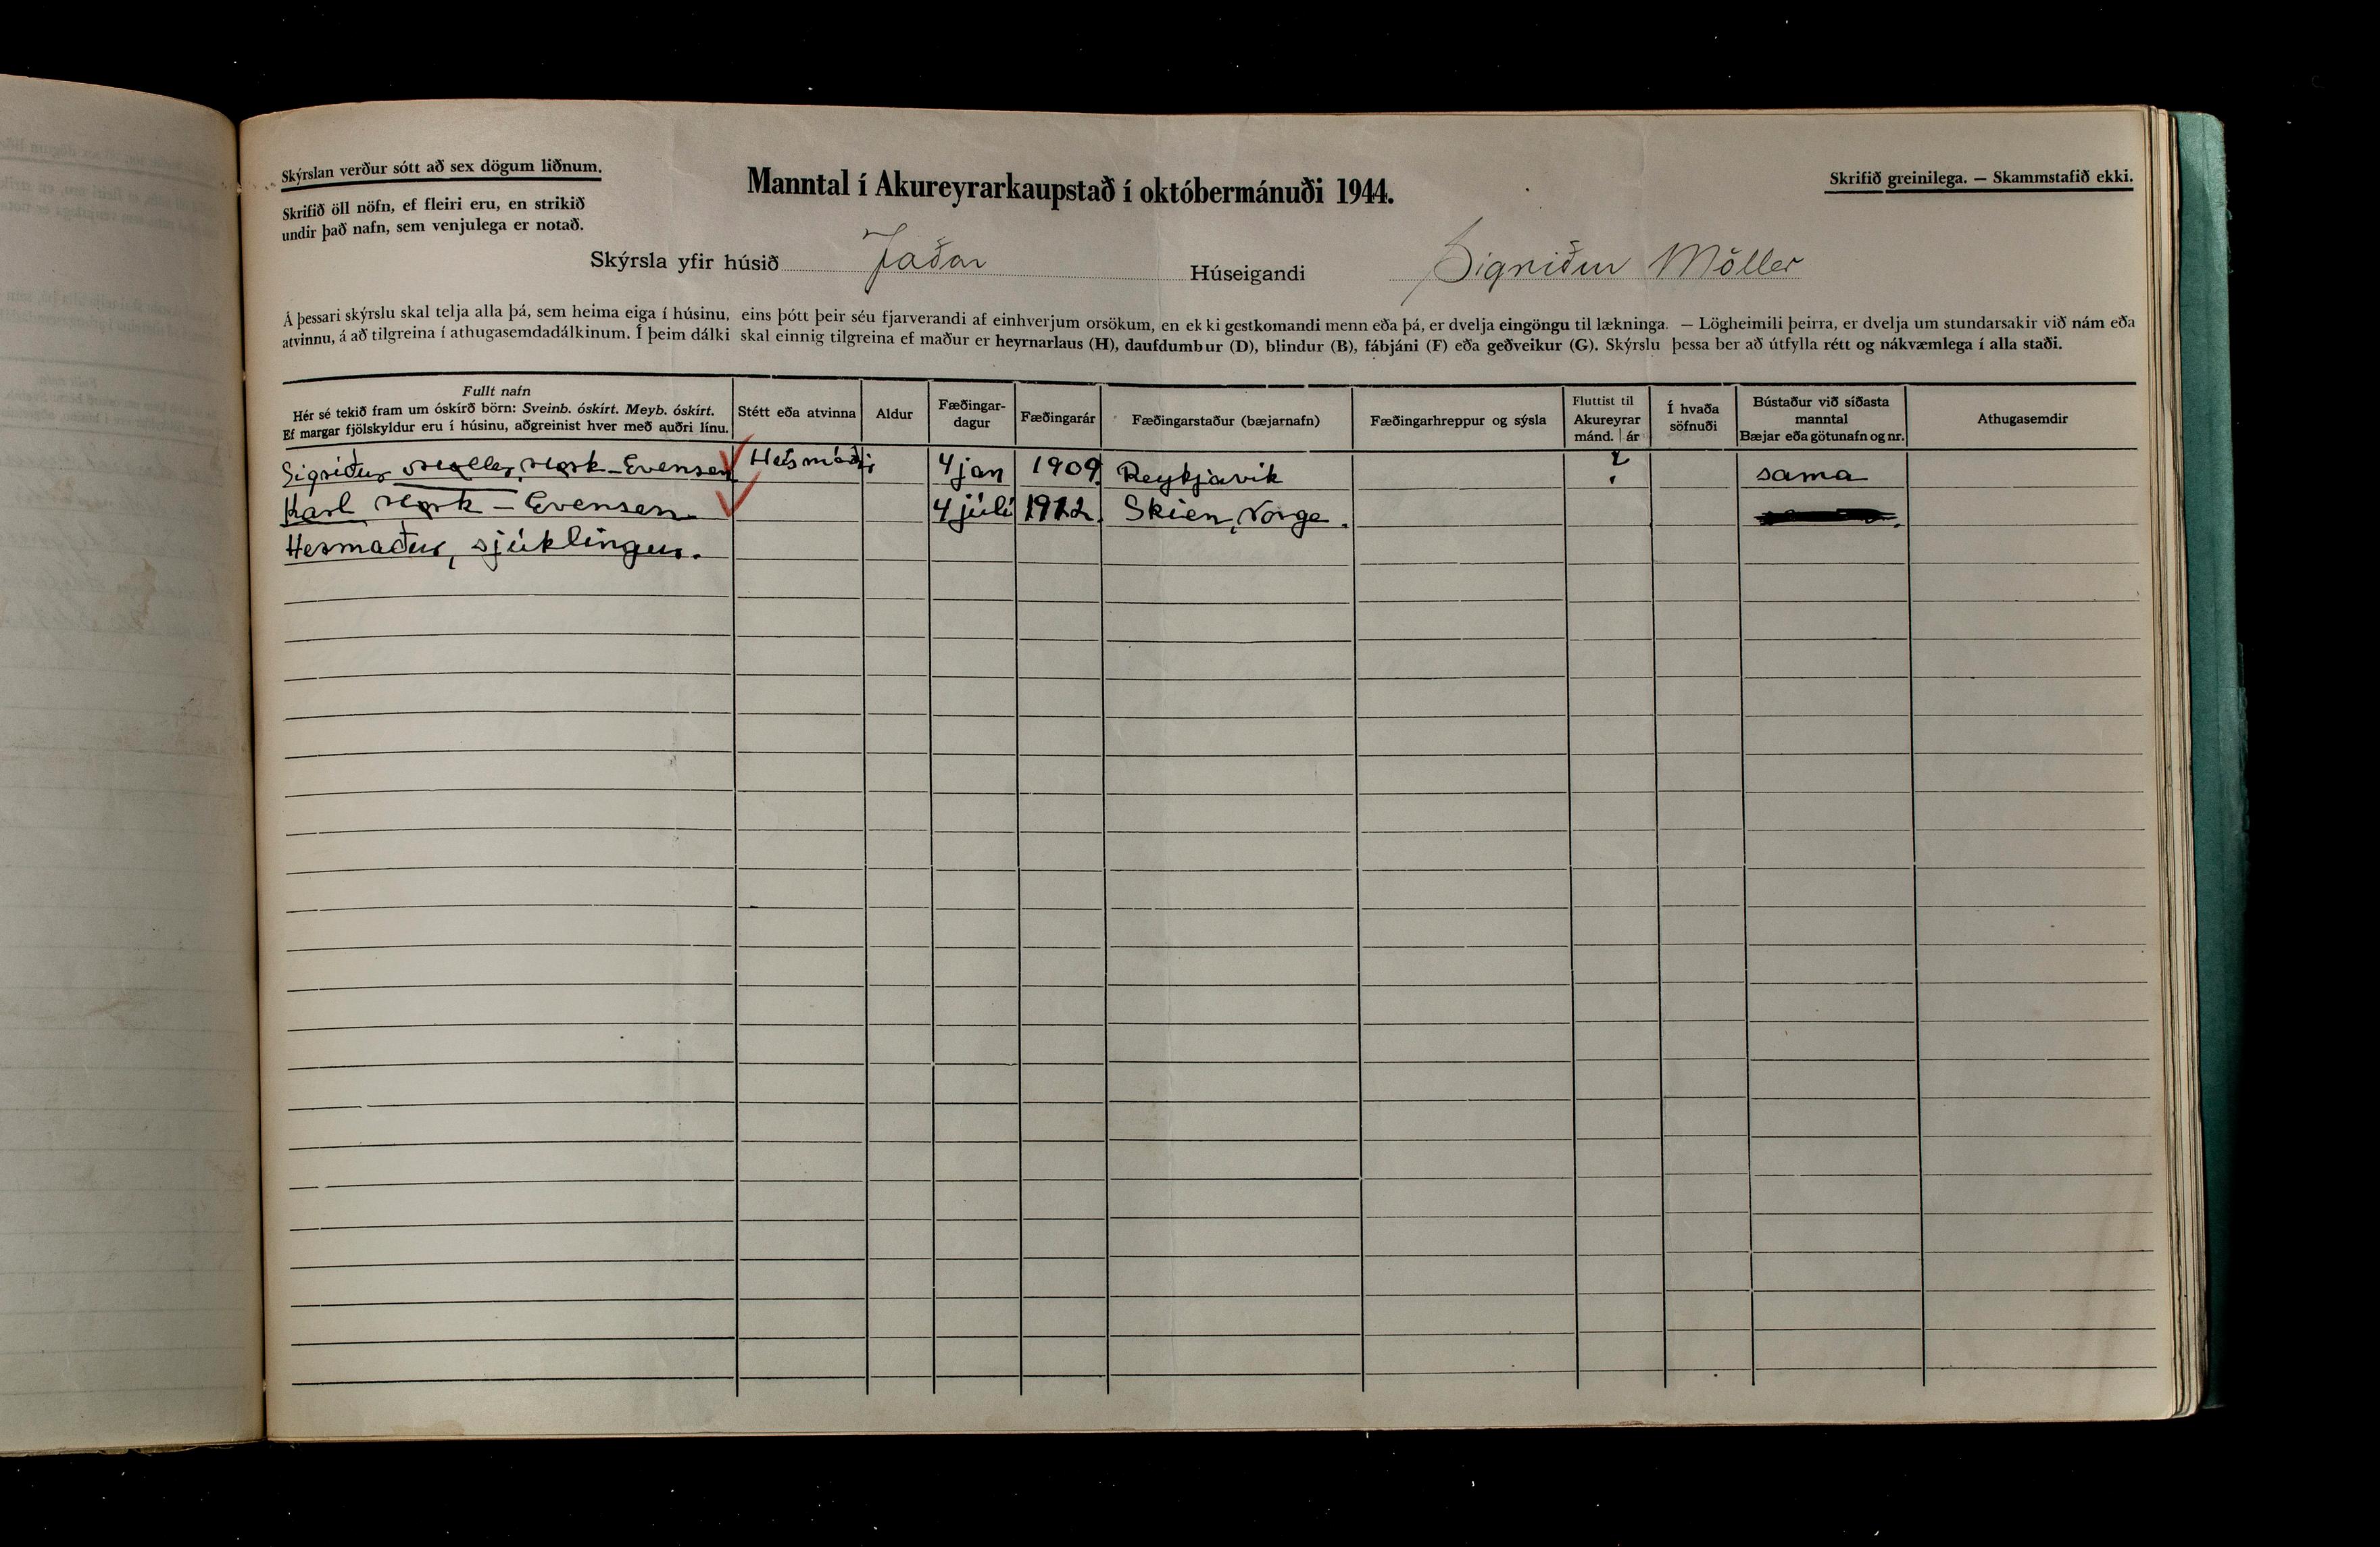 Skýrslan verður sótt að sex dögum liðnum.
Skrifið öll nöfn, ef fleiri eru, en strikið
undir það nafn, sem venjulega er notað.
Manntal í Akureyrarkaupstað í októbermánuði 1944.
Skrifið greinilega. — Skammstafið ekki.
Skýrsla yfir húsið Jaðar Húseigandi Sigríður Möller
Á þessari skýrslu skal telja alla þá, sem heima eiga í húsinu, eins þótt þeir séu fjarverandi af einhverjum orsökum, en ekki gestkomandi menn eða þá, er dvelja eingöngu til lækninga. — Lögheimili þeirra, er dvelja um stundarsakir við nám eða
atvinnu, á að tilgreina í athugasemdadálkinum. Í þeim dálki skal einnig tilgreina ef maður er heyrnarlaus (H), daufdumbur (D), blindur (B), fábjáni (F) eða geðveikur (G). Skýrslu þessa ber að útfylla rétt og nákvæmlega í alla staði.
Fullt nafn
Hér sé tekið fram um óskírð börn: Sveinb. óskírt. Meyb. óskírt.
Ef margar fjölskyldur eru í húsinu, aðgreinist hver með auðri línu.
Stétt eða atvinna
Aldur
Fæðingar-
dagur
Fæðingarár
Fæðingarstaður (bæjarnafn)
Fæðingarhreppur og sýsla
Fluttist til
Akureyrar
mánd. | ár
Í hvaða
söfnuði
Bústaður við síðasta
manntal
Bæjar eða götunafn og nr.
Athugasemdir
Sigríður Möller, Mork-Evensen 4 jan 1909. Reykjavík ? sama
Karl Mork-Evensen. 4 júlí 1912. Skien, Norge.
Hermaður, sjúklingur.